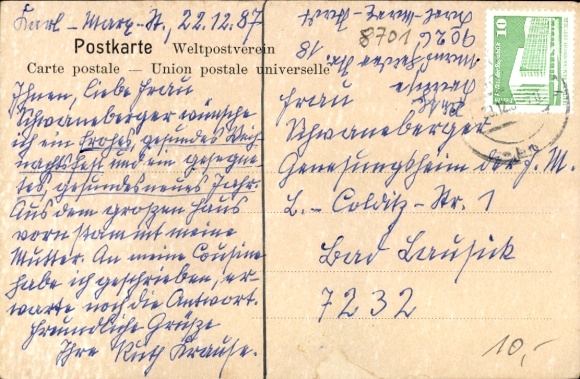 Karl-Marx-St., 22.12.87
Postkarte Weltpostverein
Carte postale — Union postale universelle
Ihnen, liebe Frau
Schwaneberger wünsche
ich ein frohes, gesundes Weih
nachtsfest und ein gesegne-
tes, gesundes neues Jahr.
Aus dem großen Haus
vorn stammt meine
Mutter. An meine Cousine
habe ich geschrieben, er-
warte noch die Antwort.
Freundliche Grüße
Ihre Ruth Krause.
Karl-Marx-Stadt
9026
18
8701
10
Frau
Schwaneberger
Genesungsheim der J. M.
L.-Colditz-Str. 1
Bad Lausick
7232
10,-